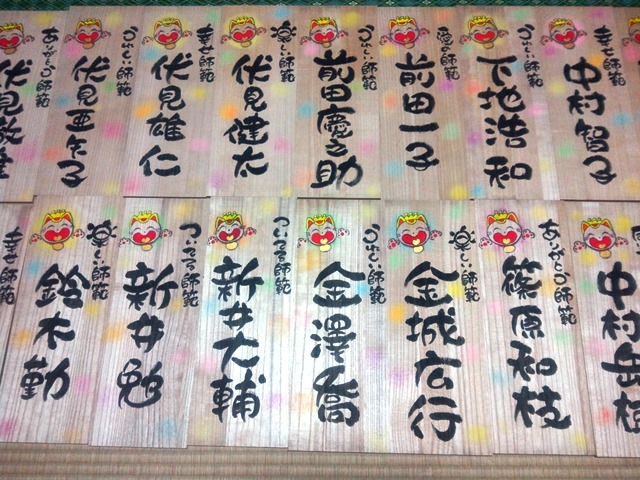 ありがとう師範
伏見
うれしい師範
伏見亜矢子
幸せ師範
伏見雄仁
楽しい師範
伏見健太
うれしい師範
前田慶之助
愛の師範
前田一子
うれしい師範
下地浩和
幸せ師範
中村智子
幸せ師範
楽しい師範
鈴木勤
ついてる師範
新井勉
ついてる師範
新井大輔
うれしい師範
金澤喬
楽しい師範
金城広行
ありがとう師範
篠原和枝
中村岳